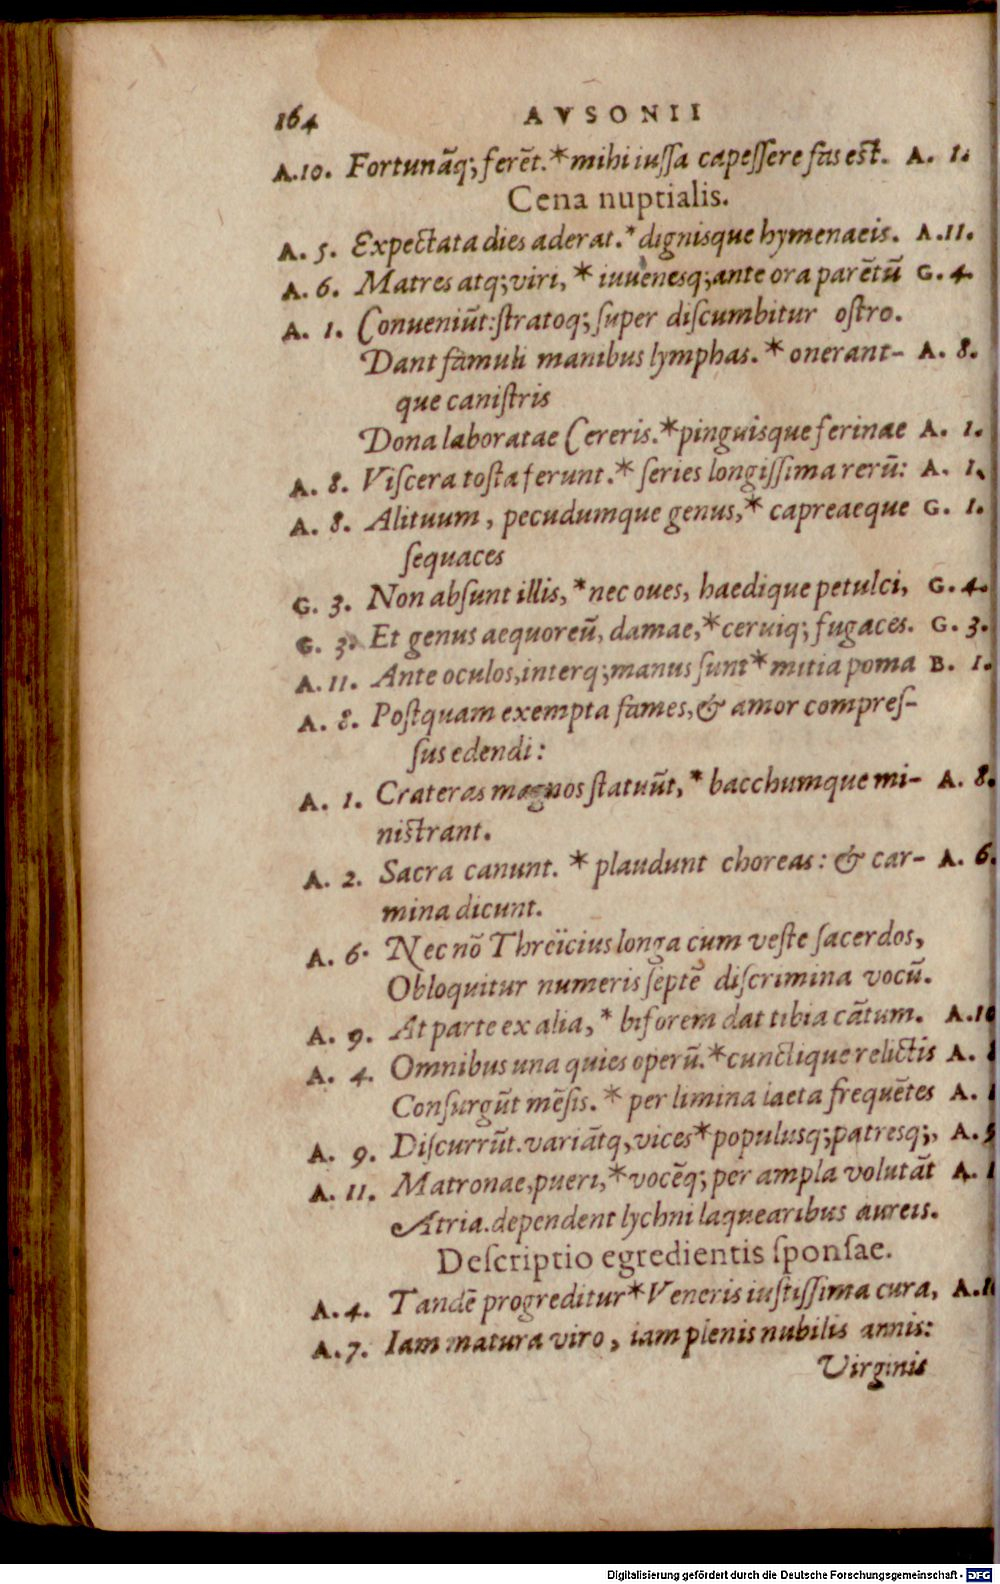 164 AVSONII
A.10. Fortunãq; ferẽt.* mihi iussa capessere fas est. A. 1.
Cena nuptialis.
A. 5. Expectata dies aderat.* dignisque hymenaeis. A.11.
A. 6. Matres atq; viri, * iuuenesq; ante ora parẽtũ G. 4
A. 1. Conueniũt: stratoq; super discumbitur ostro.
Dant famuli manibus lymphas.* onerant- A. 8.
que canistris
Dona laboratae Cereris.* pinguisque ferinae A. 1.
A. 8. Viscera tosta ferunt.* series longissima rerũ: A. 1.
A. 8. Alituum, pecudumque genus,* capreaeque G. 1.
sequaces
G. 3. Non absunt illis, * nec oues, haedique petulci, G. 4.
G. 3. Et genus aequoreũ, damae,* ceruiq; fugaces. G. 3.
A. 11. Ante oculos, interq; manus sunt* mitia poma B. 1.
A. 8. Postquam exempta fames, & amor compres-
sus edendi:
A. 1. Crateras magnos statuũt, * bacchumque mi- A. 8.
nistrant.
A. 2. Sacra canunt. * plaudunt choreas: & car- A. 6.
mina dicunt.
A. 6. Nec nõ Threïcius longa cum veste sacerdos,
Obloquitur numeris septẽ discrimina vocũ.
A. 9. At parte ex alia, * biforem dat tibia cãtum. A.10
A. 4. Omnibus una quies operũ.* cunctique relictis A.
Consurgũt mẽsis. * per limina laeta frequẽtes A.
A. 9. Discurrũt. variãtq, vices* populusq; patresq;, A. 9
A. 11. Matronae, pueri, * vocẽq; per ampla volutãt A. 1
Atria. dependent lychni laquearibus aureis.
Descriptio egredientis sponsae.
A. 4. Tandẽ progreditur* Veneris iustissima cura, A.10
A. 7. Iam matura viro, iam plenis nubilis annis:
Virginis
Digitalisierung gefördert durch die Deutsche Forschungsgemeinschaft - DFG